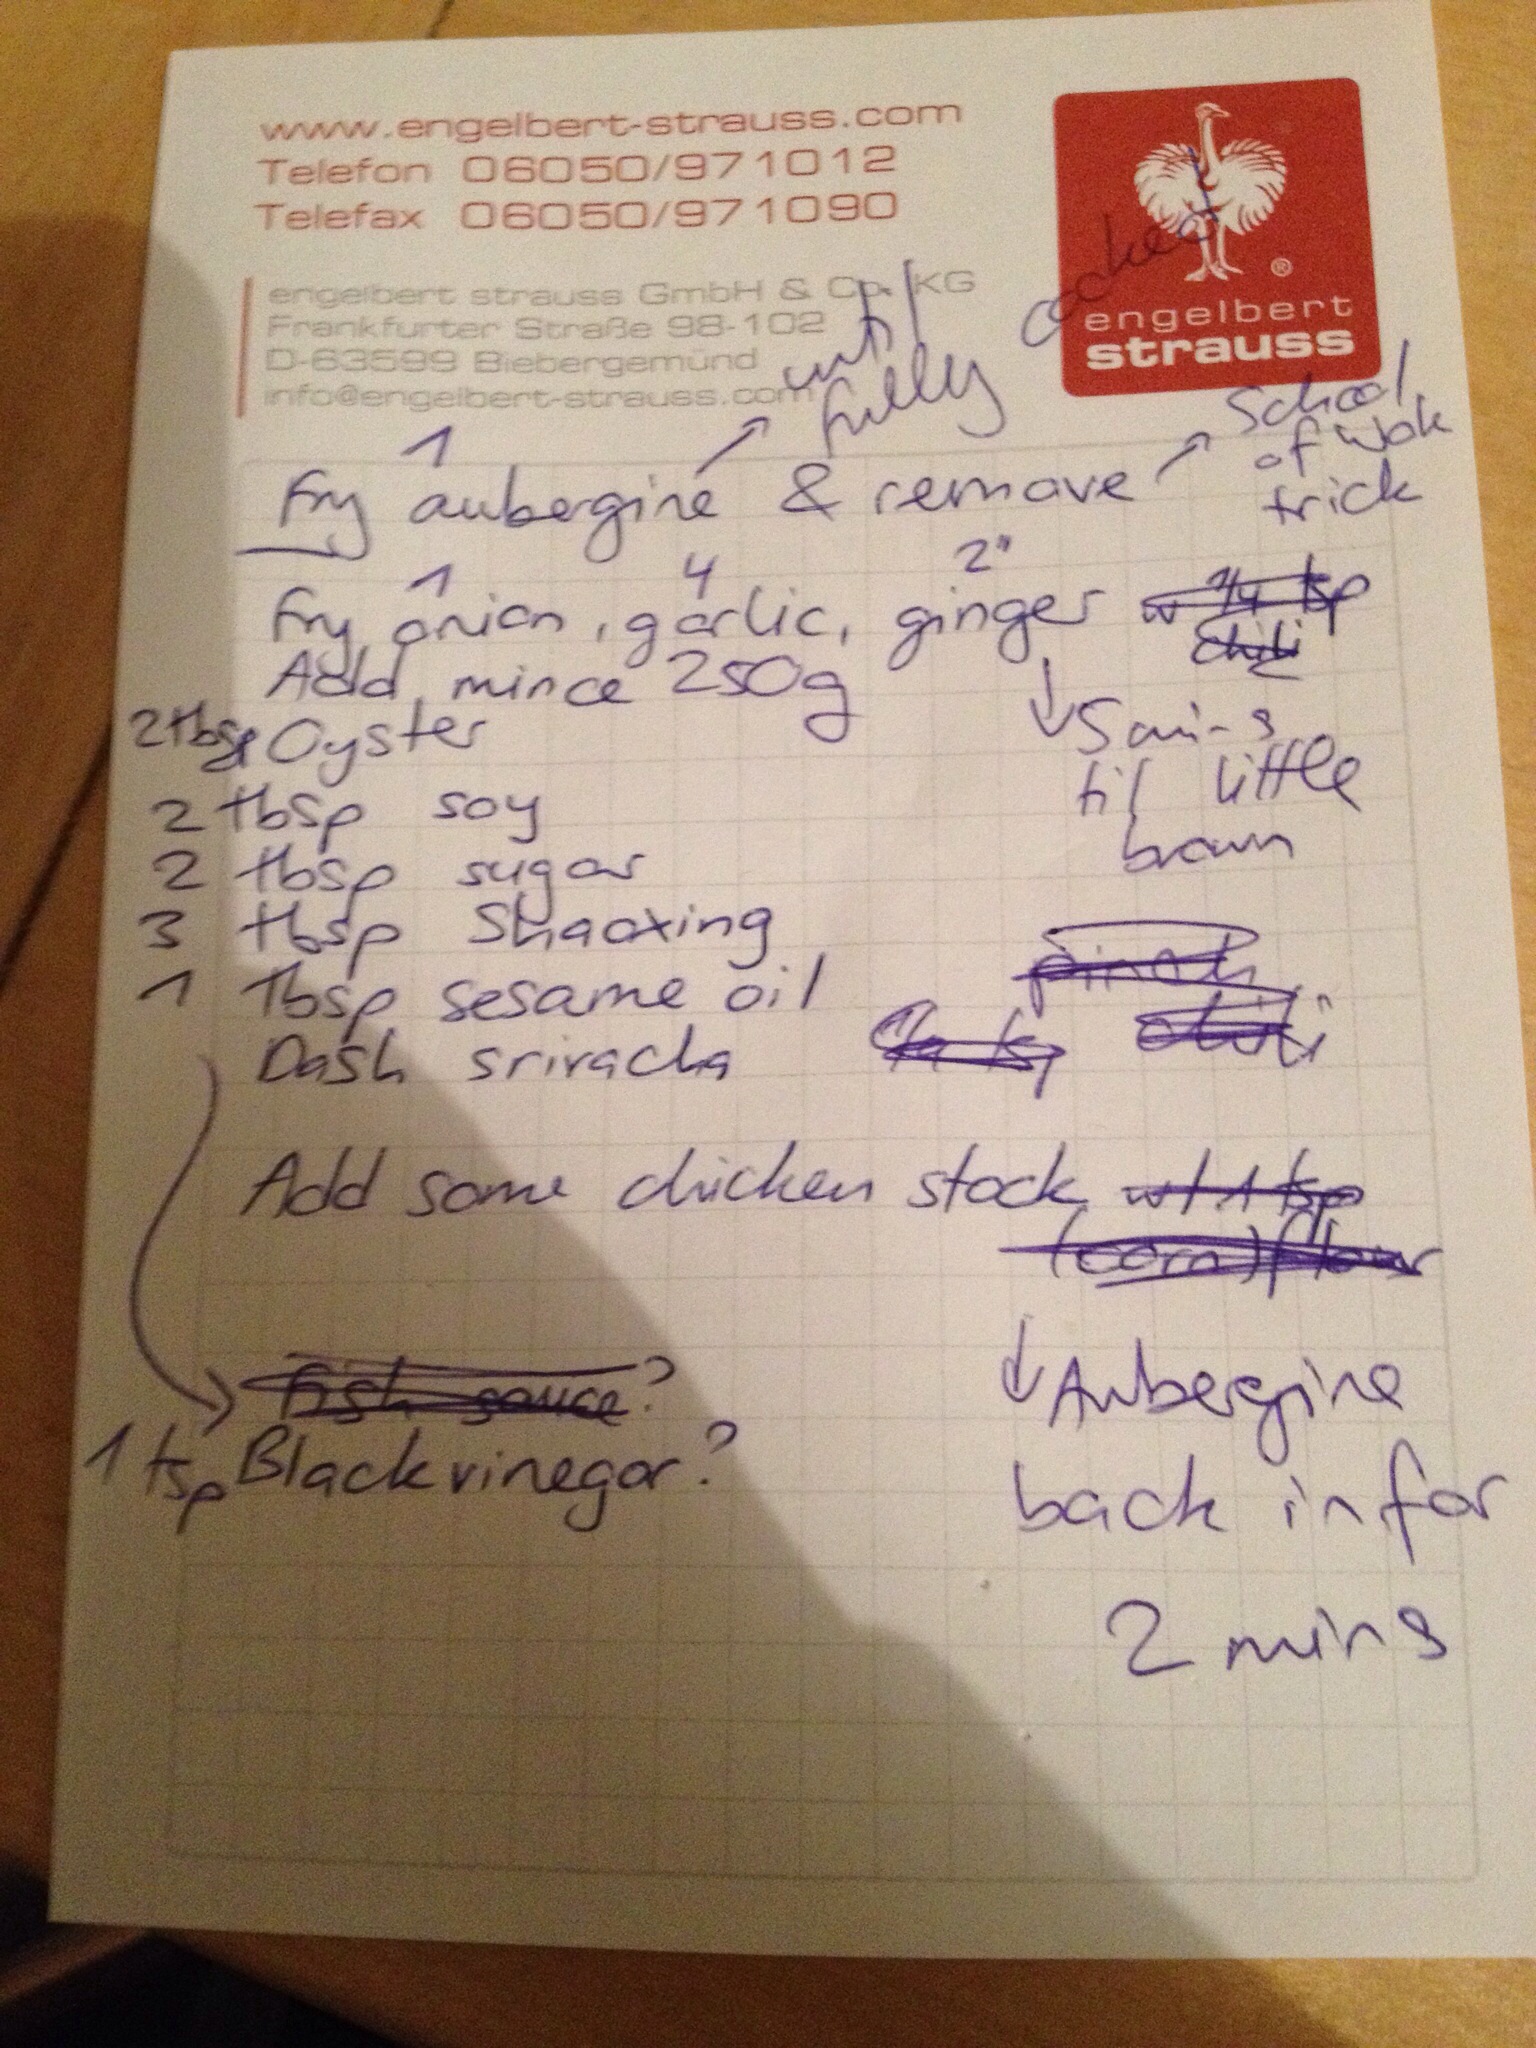 www.engelbert-strauss.com
Telefon 06050/971012
Telefax 06050/971090
engelbert strauss GmbH & Co. KG
Frankfurter Straße 98-102
D-63599 Biebergemünd
info@engelbert-strauss.com
®
engelbert
strauss
until
fully cooked
School
of Wok
trick
1
Fry aubergine & remove
1 4 2"
Fry onion, garlic, ginger w 1/4 tsp
chili
Add mince 250g
5 mins
til little
brown
2 tbsp Oyster
2 tbsp soy
2 tbsp sugar
3 tbsp Shaoxing
1 tbsp sesame oil
Dash sriracha
pinch
chili
Add some chicken stock w/ 1 tsp
(corn)flour
Fish sauce?
1 tsp Black vinegar?
Aubergine
back in for
2 mins